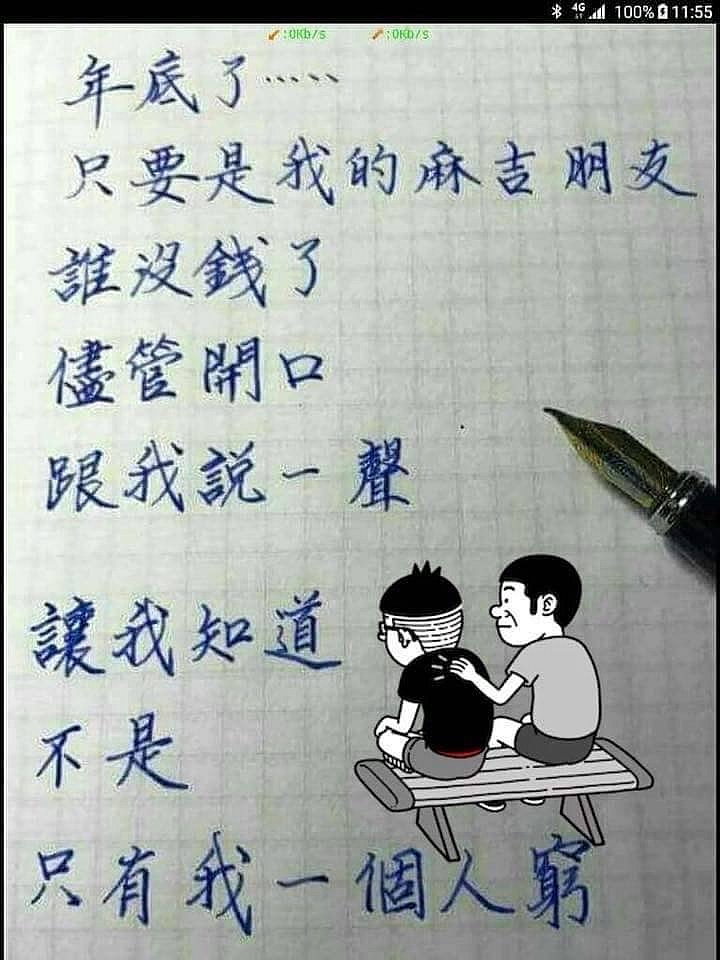 4G
100% 11:55
:0Kb/s :0Kb/s
年底了……
只要是我的麻吉朋友
誰沒錢了
儘管開口
跟我說一聲
讓我知道
不是
只有我一個人窮